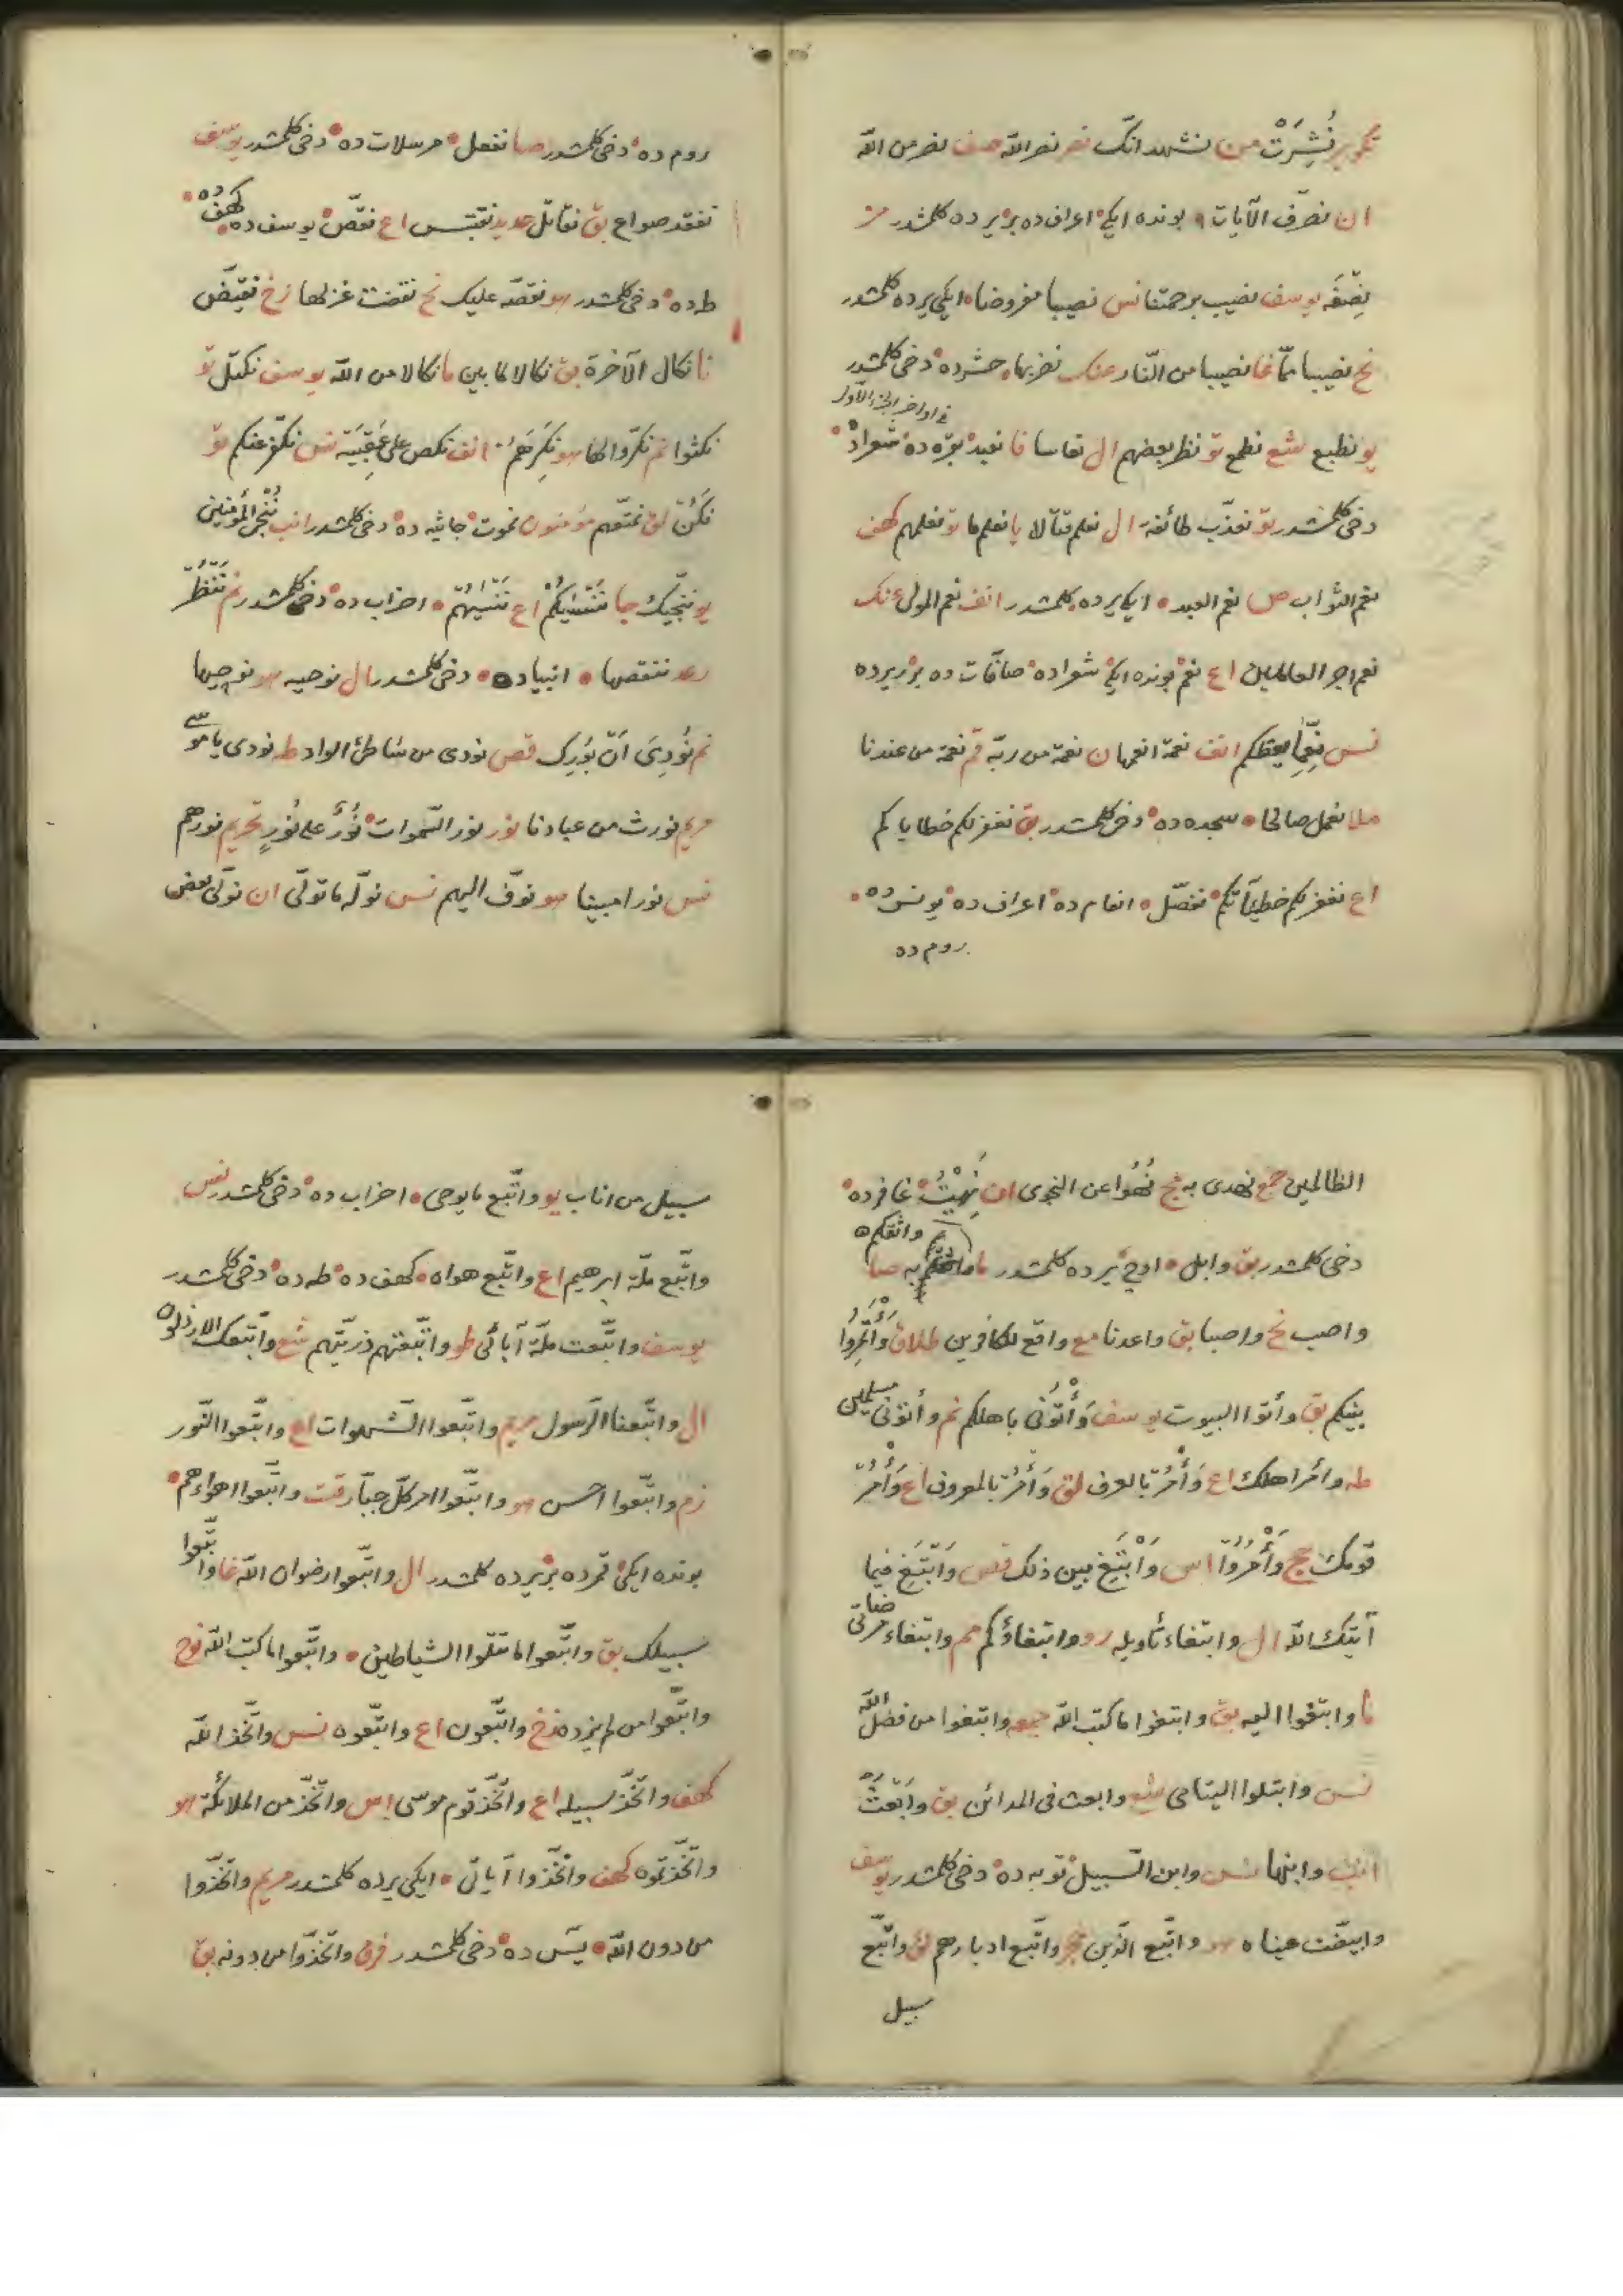 تكوير نُشِرَتْ من نشهد انك نصر نصر الله صف نصر من الله
ان نصرّف الآيات بونده ايكى اعراف ده بر يرده كلمشدر
نصفه يوسف نصيب برحمتنا نس نصيبا مفروضا ايكى يرده كلمشدر
نح نصيبا ممّا غا نصيبا من النّار عنك نضربها حشرده دخى كلمشدر
فى اواخر الجزء الاول
يو نطبع شع نطمع تو نظر بعضهم ال نعاسا فا نعبد بقره ده شعراده
دخى كلمشدر تو نعذّب طائفة ال نعلم قتالا يا نعلم ما تو نعلمهم كهف
نعم الثواب ص نعم العبد ايكى يرده كلمشدر انف نعم المولى عنك
نعم اجر العاملين اع نعم بونده ايكى شعراده صافّات ده بر يرده
نس نِعِمّا يعظكم انف نعمة انعمها ن نعمة من ربّه قم نعمة من عندنا
ملا نعمل صالحا سجده ده دخى كلمشدر بق نغفر لكم خطاياكم
اع نغفر لكم خطيآتكم نفصّل انعام ده اعراف ده يونس ده
روم ده
روم ده دخى كلمشدر صا نفعل مرسلات ده دخى كلمشدر يوسف
نفقد صواع بق نقاتل حديد نقتبس اع نقصّ يوسف ده كهف ده
طه ده دخى كلمشدر هو نقصّه عليك نح نقضت غزلها زخ نقيّض
نا نكال الآخرة بق نكالا لما بين ما نكالا من الله يوسف نكتل تو
نكثوا نم نكّروا لها هو نكرهم انف نكص على عقبيه نس نكفّر عنكم تو
نكن لق نمتّعهم مؤمنون نموت جاثيه ده دخى كلمشدر انب ننجى المؤمنين
يو ننجّيك جا ننسيكم اع ننسيهم احزاب ده دخى كلمشدر نم ننظر
رعد ننقصها انبياده دخى كلمشدر ال نوحيه هو نوحيها
نم نُودِىَ اَنْ بُورِك قصص نودى من شاطئ الواد طه نودى يا موسى
مريم نورث من عبادنا نور نور السّموات نُورٌ على نُورٍ تحريم نورهم
نس نورا مبينا هو نوفّ اليهم نس نولّه ما تولّى ان نولّى بعض
الظالمين جمع نهدى به مج نُهُوا عن النجوى ان نُهِيْتُ غافرده
دخى كلمشدر بق وابل اوچ يرده كلمشدر ما واثقكم به صا
واصب نح واصبا بق واعدنا مع واقع للكافرين طلاق وَأْتَمِرُوا
بينكم بق وأتوا البيوت يوسف وَأْتُونى باهلكم نم وأتونى مسلمين
طه وأمر اهلك اع وَأْمُرْ بالعرف لق وَأْمُرْ بالمعروف اع وَأْمُرْ
قومك حج وَأَمَرُوا اس وَابْتَغِ بين ذلك قصص وَابْتَغِ فيما
آتيك الله ال وابتغاء تأويله رو وابتغاؤكم مم وابتغاء مرضاتى
ما وابتغوا اليه بق وابتغوا ما كتب الله جمعه وابتغوا من فضل الله
نس وابتلوا اليتامى شع وابعث فى المدائن بق وابعث
انب وابنها نس وابن السّبيل توبه ده دخى كلمشدر يوسف
وابيضّت عيناه هو واتّبع الذين حجر واتّبع ادبارهم لق واتّبع
سبيل
سبيل من اناب يو واتّبع ما يوحى احزاب ده دخى كلمشدر نس
واتّبع ملّة ابرهيم اع واتّبع هواه كهف ده طه ده دخى كلمشدر
يوسف واتّبعت ملّة آبائى طو واتّبعتهم ذريّتهم شع واتّبعك الارذلون
ال واتّبعنا الرّسول مريم واتّبعوا الشّهوات اع واتّبعوا النّور
زم واتّبعوا احسن هو واتّبعوا امر كلّ جبّار قت واتّبعوا اهواءهم
بونده ايكى قمرده بر يرده كلمشدر ال واتّبعوا رضوان الله غا واتّبعوا
سبيلك بق واتّبعوا ما تتلوا الشياطين وابتغوا ما كتب الله نوح
واتّبعوا من لم يزده زخ واتّبعون اع واتّبعوه نس واتّخذ الله
كهف واتّخذ سبيله اع واتّخذ قوم موسى اس واتّخذ من الملائكة هو
واتّخذتموه كهف واتّخذوا آياتى ايكى يرده كلمشدر مريم واتّخذوا
من دون الله يس ده دخى كلمشدر فرق واتّخذوا من دونه بق